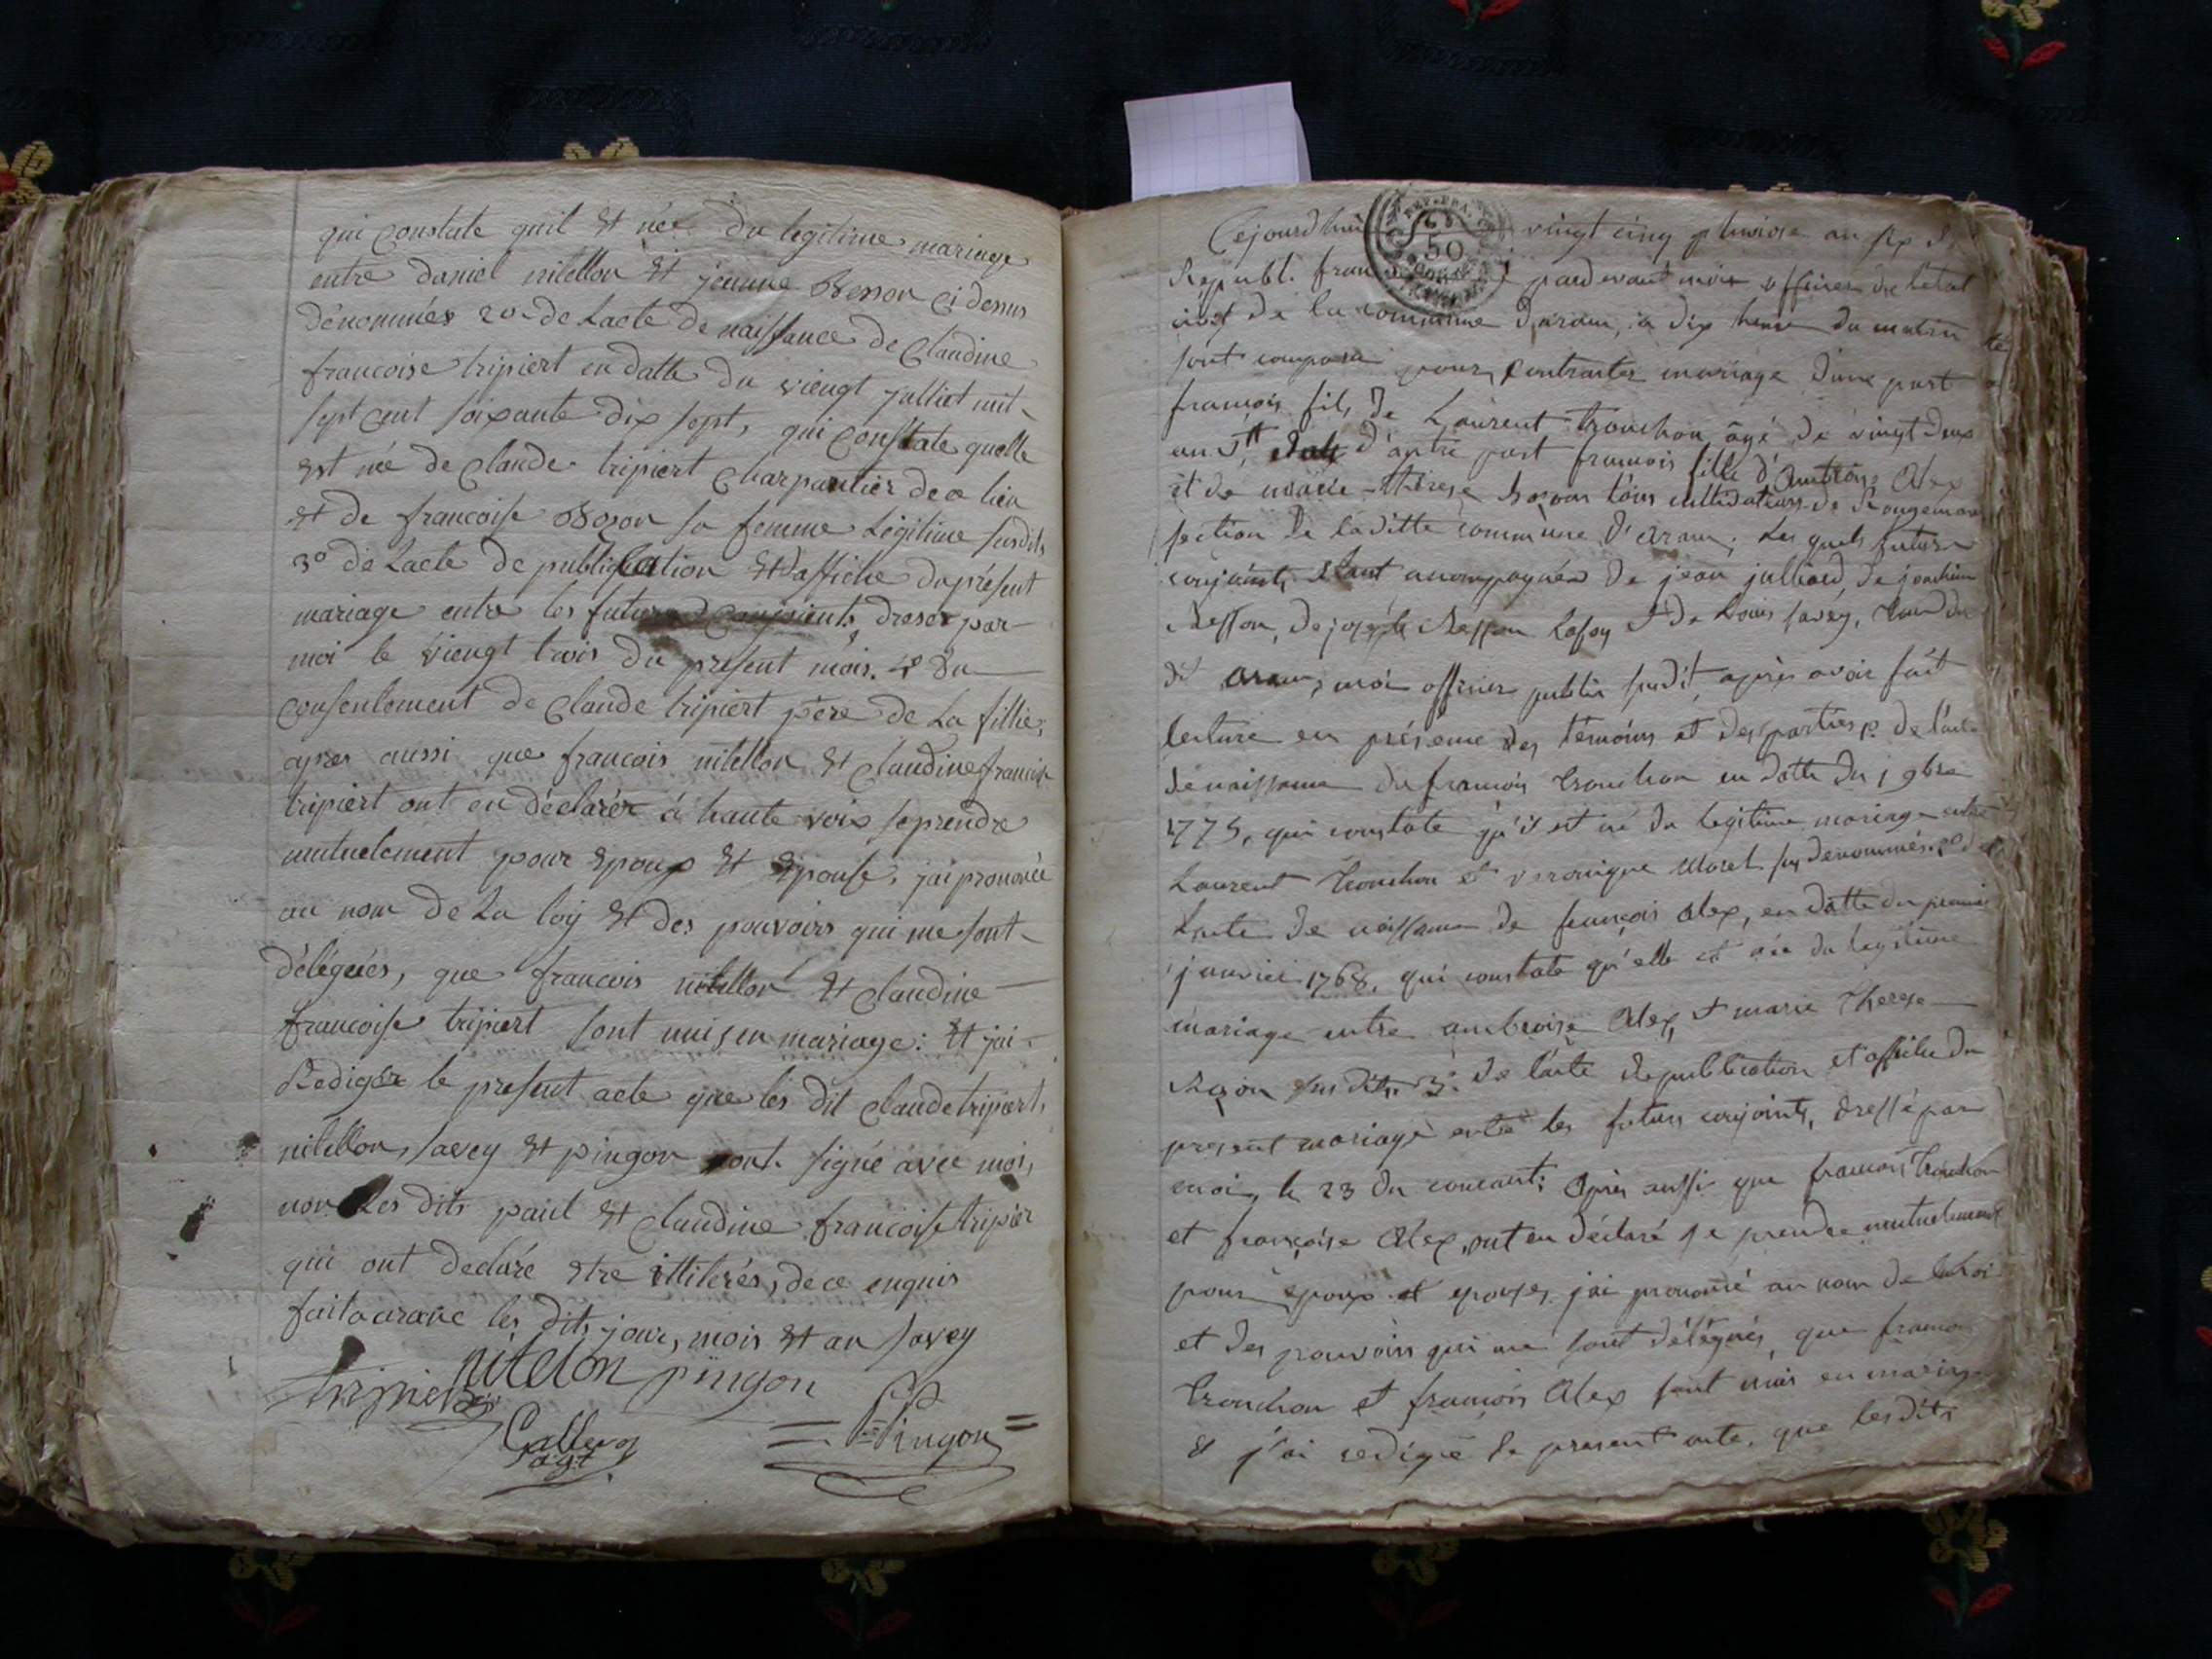 qui constate quil Et née du legitime mariage
entre daniel nitellon Et jeanne Besson ci dessus
dénommés 2o de Lacte de naissance de Claudine
francoise tripiert en datte du viengt julliet mil
sept cent soixante dix sept, qui Constate quelle
Est née de Claude tripiert Charpantier de ce lieu
Et de francoise Boson sa femme Légitime susdits
3o de Lacte de publication Et d'affiche du présent
mariage entre les futurs Conjoints dresér par
moi le viengt trois du present mois. 4o du
Consentement de Claude tripiert père de La fillie,
apres aussi que francois nitellon Et Claudine francoise
tripiert ont eu déclarér à haute voix se prendre
mutuelement pour Epoux Et Epouse, jai prononcée
au nom de La loÿ Et des pouvoirs qui me sont
délégués, que francois nitellon Et Claudine
francoise tripiert sont unis en mariage: Et jai
Redigér le present acte que les dit Claude tripiert,
nitellon, savey Et pingon ont signé avec moi,
non Les dits paul Et Claudine francoise tripier
qui ont declaré Etre illiterés, de ce enquis
fait a arace les dits jour, mois Et an savey
nitelon pingon
tripier
Callevoz
agt
Pingon
Cejourdhui vingt cinq pluviose an six de
Republ. fran pardevant moi officier de l'etat
civil de la commune d'aram, à dix heure du matin
sont comparu pour contracter mariage d'une part
francois fils de Laurent Tronchon âgé de vingt deux
an d'autre part francois fille d'Ambroise Alex
et de marie-thérese Boson tous cultivateurs de Rougemon
section de la ditte commune d'aram; Les quels futurs
conjoints étant accompagnés de jean julliard, de joachim
Besson, de joseph Besson Lafoy et de Louis savey, tous du
dt aram, moi officier public susdit, après avoir fait
lecture en présence des témoins et des parties 1o de l'acte
de naissance de francois Tronchon en datte du 1 9bre
1775, qui constate qu'il est né du legitime mariage entre
Laurent Tronchon et veronique Morel sus denommés. 2o de
Lacte de naissance de françois Alex, en datte du premier
janvier 1768, qui constate qu'elle est née du legitime
mariage entre ambroise Alex, et marie Therese
Boson sus dits. 3o de l'acte de publication et affiche du
present mariage entre les futurs conjoints, dressé par
moi, le 23 du courant; Après aussi que francois Tronchon
et françoise Alex, ont eu déclaré se prendre mutuelement
pour époux et epouses, j'ai prononcé au nom de la Loi
et des pouvoirs qui me sont délégués, que francois
Tronchon et francois Alex sont unis en mariage
et j'ai redigé le present acte, que lesdits